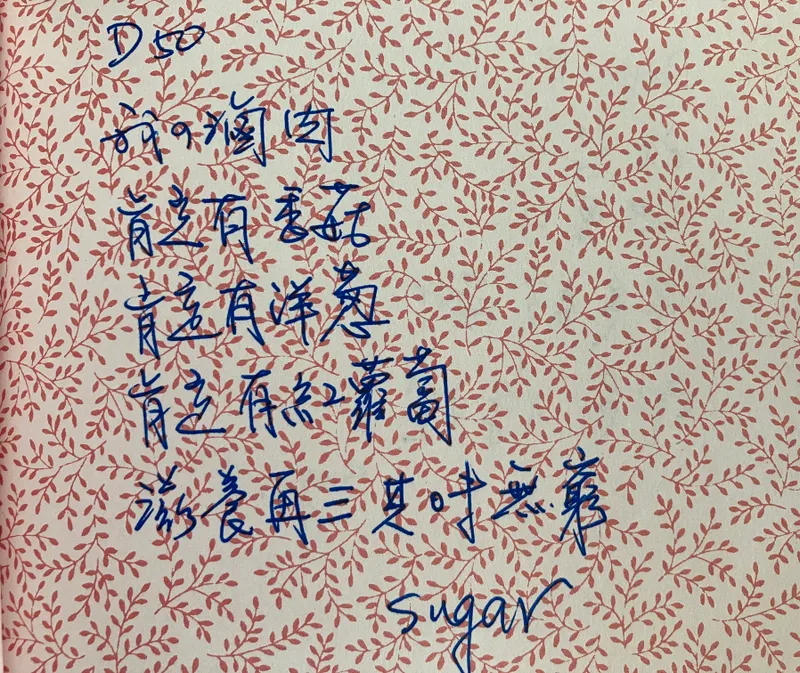 D50
我の滷肉
肯定有香菇
肯定有洋蔥
肯定有紅蘿蔔
滋養再三其味無窮
sugar